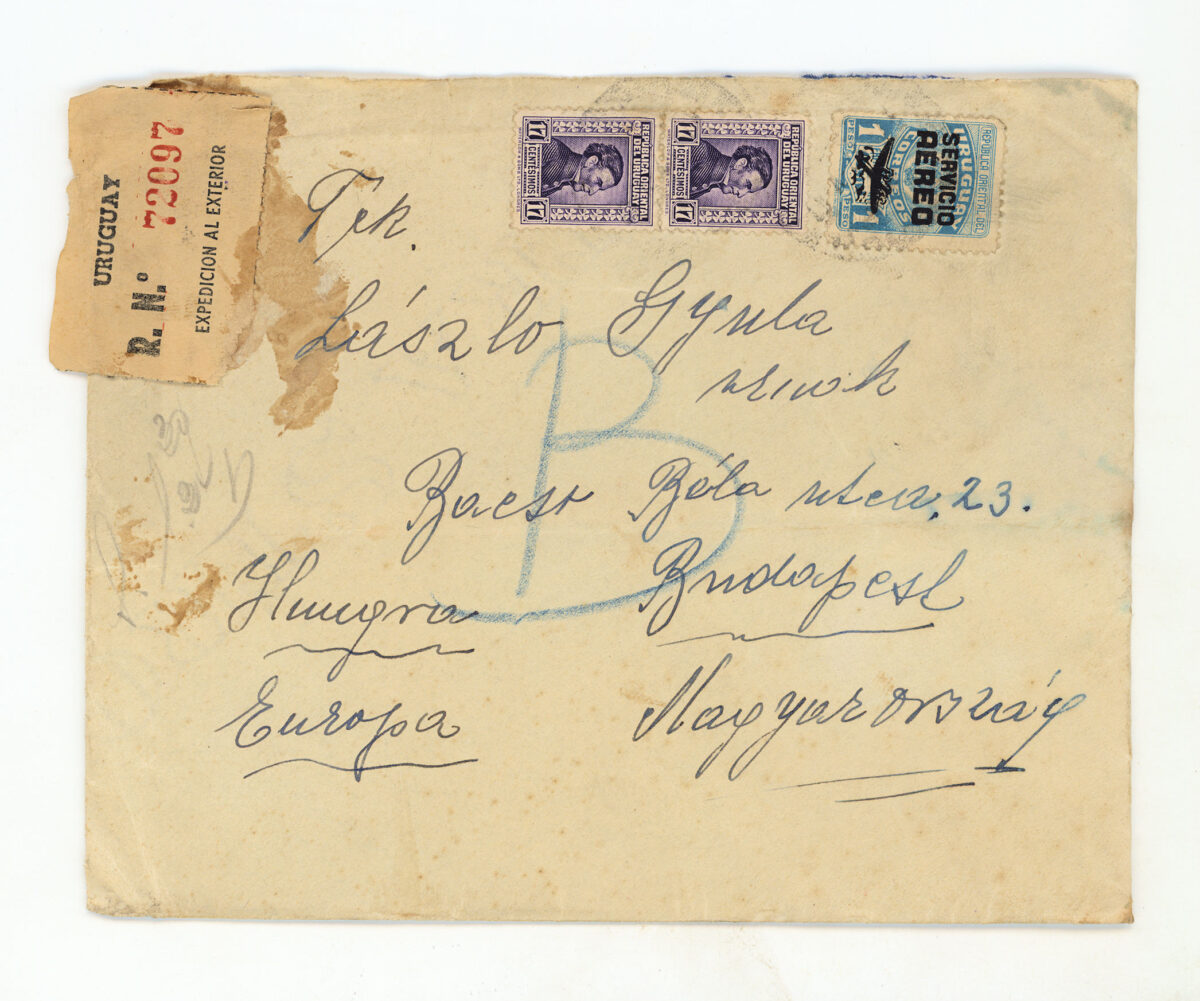 URUGUAY
R. N.º 72097
EXPEDICION AL EXTERIOR
REPUBLICA ORIENTAL
DEL URUGUAY
17 CENTESIMOS 17
REPUBLICA ORIENTAL
DEL URUGUAY
17 CENTESIMOS 17
REPUBLICA ORIENTAL DEL
URUGUAY
CORREOS
SERVICIO
AEREO
1 1
PESO PESO
Tek.
László Gyula
urnak
B
Bacsó Béla utca, 23.
Hungra Budapest
Europa Magyarország